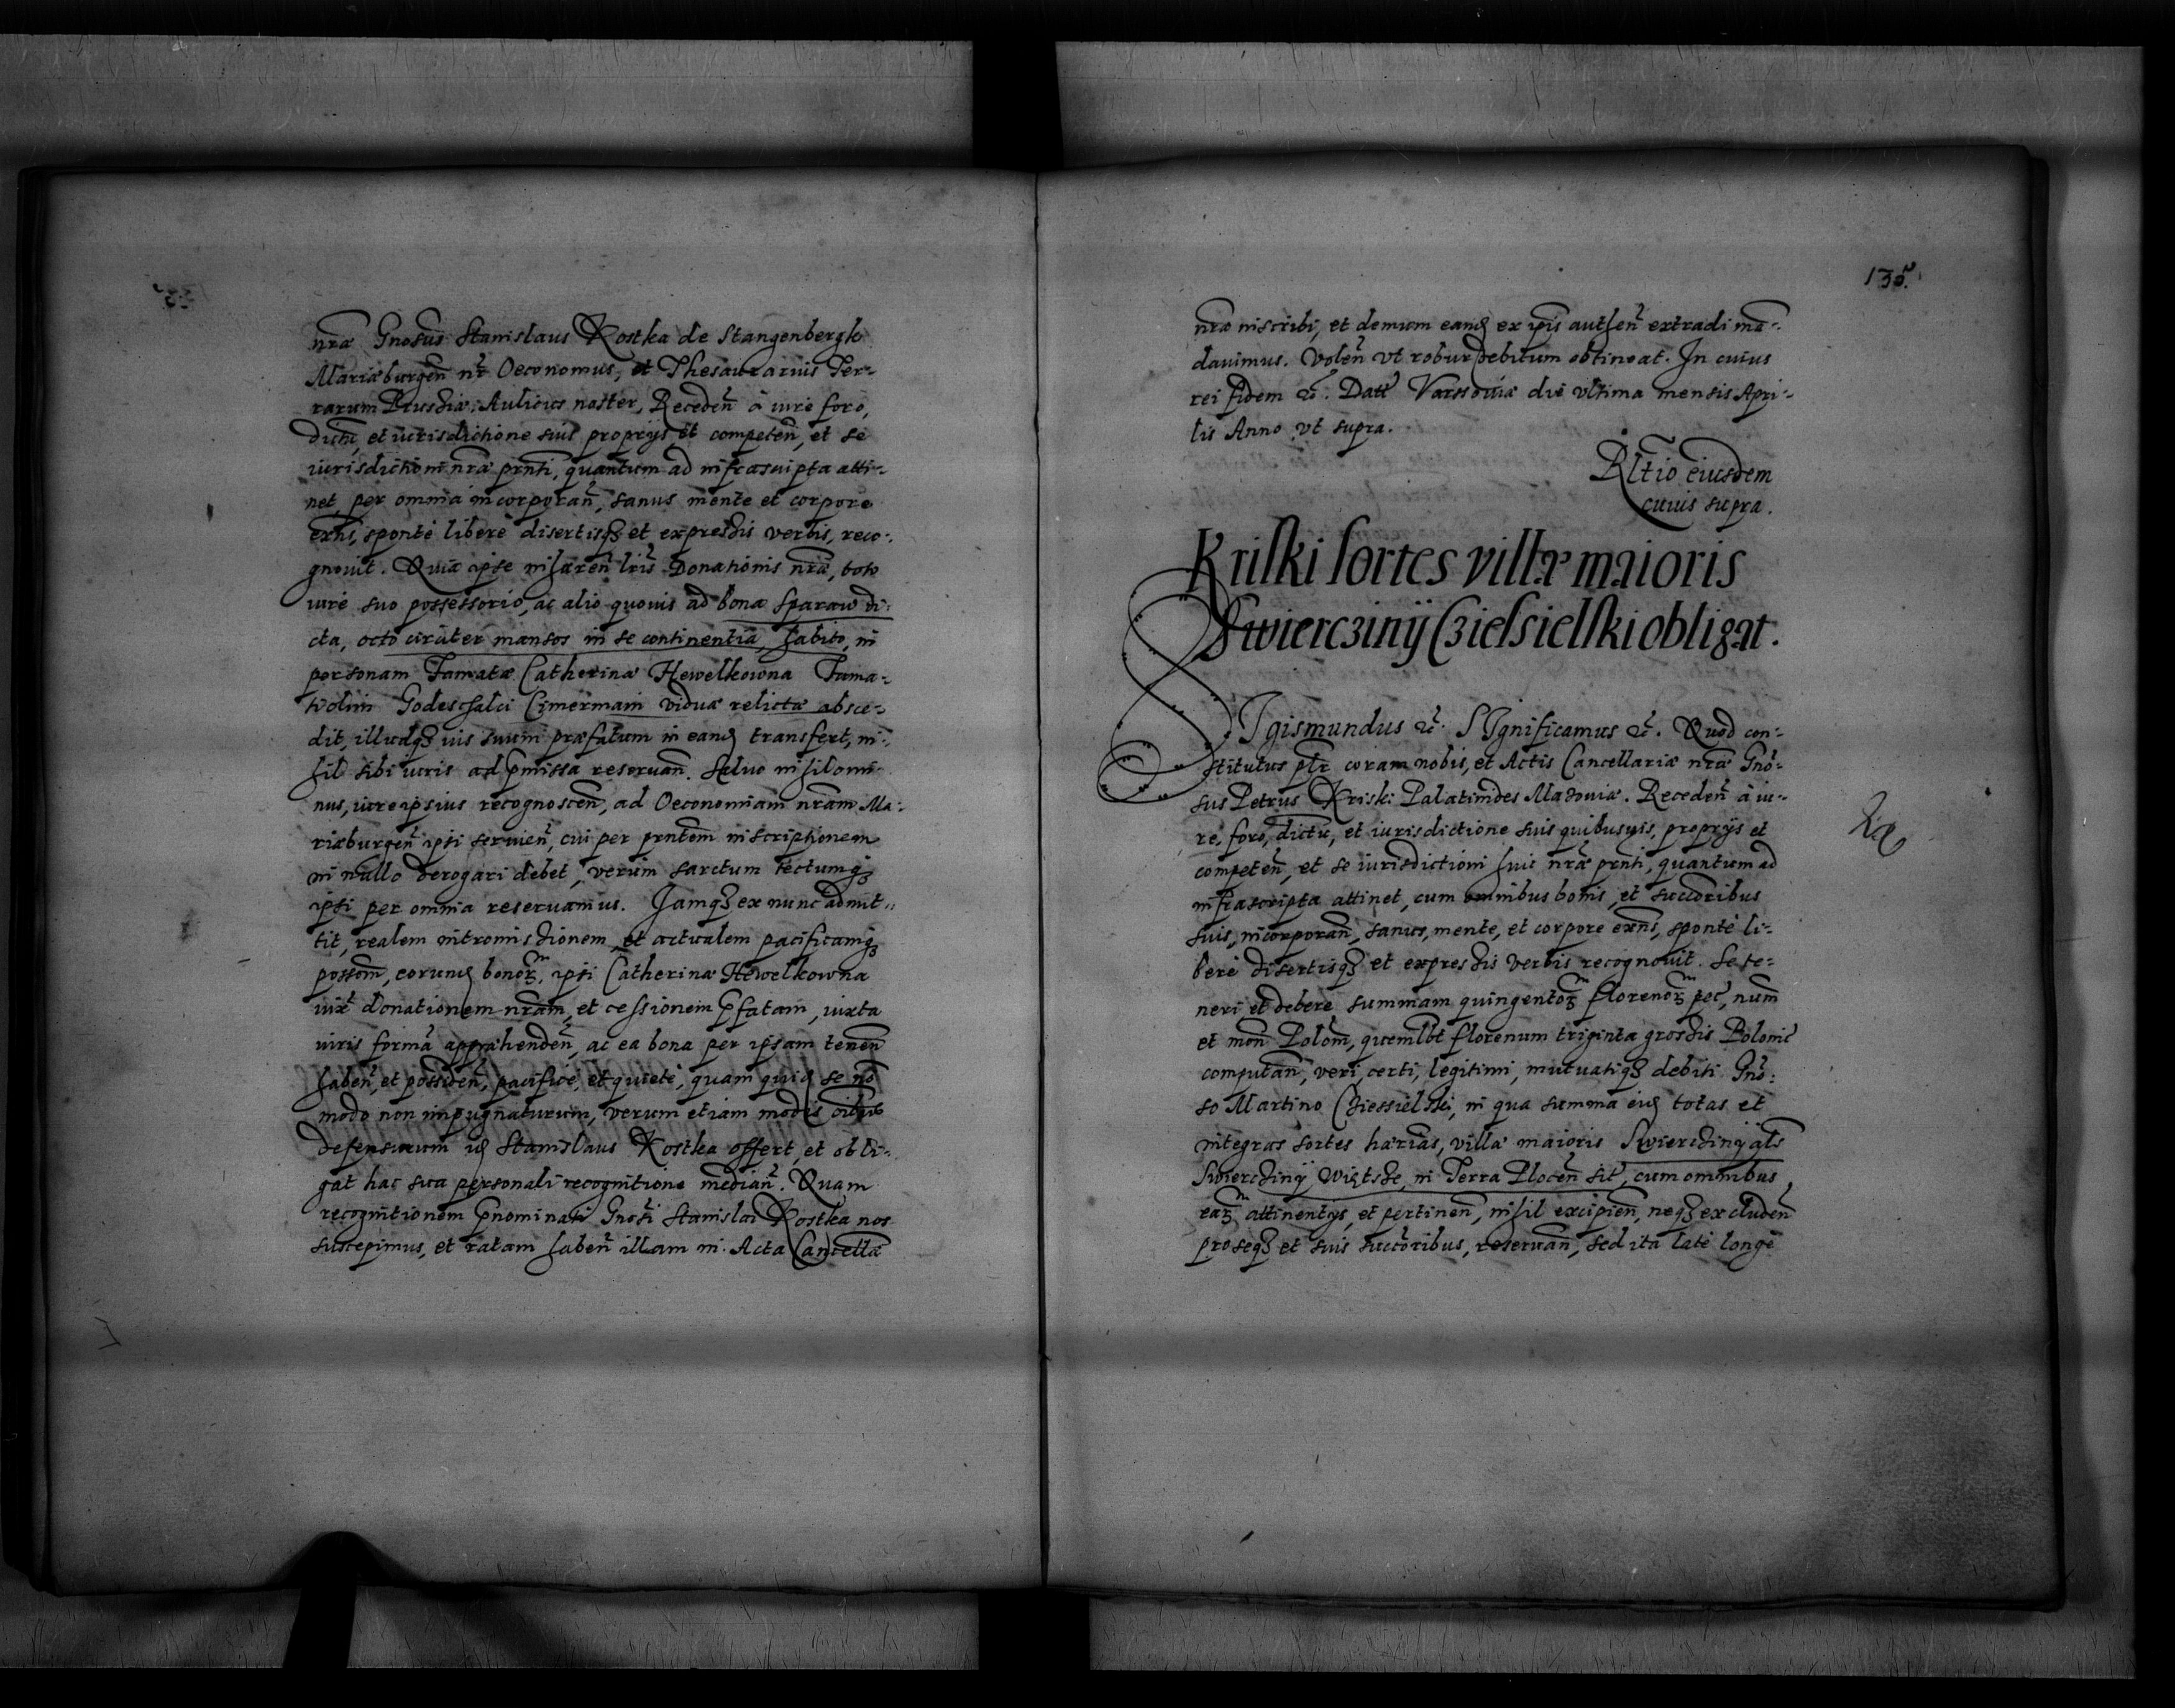 nrã Gnosus Stanislaus Kostka de Stangenbergk
Mariæburgeñ nr̃ Oeconomus, et Thesaurarius Ter-
rarum Prussiæ, Aulicus noster, Recedeñ à iure foro,
dictũ, et iurisdictione suis proprijs et competeñ, et se
iurisdictioni nrã pr̃nti, quantum ad infrascripta atti-
net, per omnia incorporañ, sanus mente et corpore
exñs, sponte libere disertisq3 et expressis verbis, reco-
gnouit. Quia ipse inhæreñ lris Donationis nrã, toto
iure suo possessorio, ac alio quouis ad bona Sparaw di-
cta, octo circiter mansos in se continentia, habito, in
personam Famatæ Catherinæ Hewelkowna Fama-
ti olim Godeschalci Cimermain viduæ relictæ absce-
dit, illudq3 ius suum præfatum in eand transfert, ni-
hil sibi iuris ad p̃missa reseruañ. Saluo nihilomi-
nus, iure ipsius recognosceñ, ad Oeconomiam nrãm Ma-
riæburgeñ ipsi seruieñ, cui per pr̃ntem inscriptionem
in nullo derogari debet, verum sarctum tectumq3
ipsi per omnia reseruamus. Jamq3 ex nunc admit-
tit, realem intromissionem, et actualem pacificamq3
possom̃, eorund bonor3, ipsi Catherinæ Hewelkowna
iux̃ donationem nrãm, et cessionem p̃fatam, iuxta
iuris formã appræhendeñ, ac ea bona per ipsam teneñ
habeñ, et possideñ, pacifice, et quiete, quam quid se nõ
modo non inpugnaturum, verum etiam modis oĩbus
defensurum id Stanislaus Kostka offert, et obli-
gat hac sua personali recognitione mediañ. Quam
recognitionem p̃nominati Gnosi Stanislai Kostka nos
suscepimus, et ratam habeñ illam in Acta Cancellã
135.
nræ inscribi, et demum eand ex ipsis autheñ extradi mã-
dauimus. Voleñ vt robur debitum obtineat. In cuius
rei fidem &c. Datt Varssouiæ die vltima mensis Apri-
lis Anno vt supra.
Rltio eiusdem
cuius supra.
Kriski sortes villæ maioris
Swiercziny Czielsielski obligat.
SIgismundus &c. SIgnificamus &c. Quod con-
stitutus pltr coram nobis, et Actis Cancellariæ nræ Gno-
sus Petrus Kriski Palatinides Masouiæ. Recedeñ à iu-
re, foro, dictũ, et iurisdictione suis quibusuis, proprijs et
competeñ, et se iurisdictioni huic nræ prñti, quantum ad
infrascripta attinet, cum omnibus bonis, et succoribus
suis, incorporañ, sanus, mente, et corpore exñs, sponte li-
bere disertisq3 et expressis verbis recognouit. Se te-
neri, et debere summam quingentor3 florenor3 pec̃, num̃
et moñ Polom̃, quemlbt florenum triginta grossis Polonic̃
computañ, veri, certi, legitimi, mutuatiq3 debiti Gno-
so Martino Cziessielski, in qua summa eid totas et
integras sortes hærias, villæ maioris Swiercziny als
Swiercziny Większe, in Terra Ploceñ sit, cum omnibus,
ear3 attinentys, et pertineñ, nihil excipieñ, neq3 excludeñ
pro seq3 et suis succoribus, reseruañ, sed ita late longe